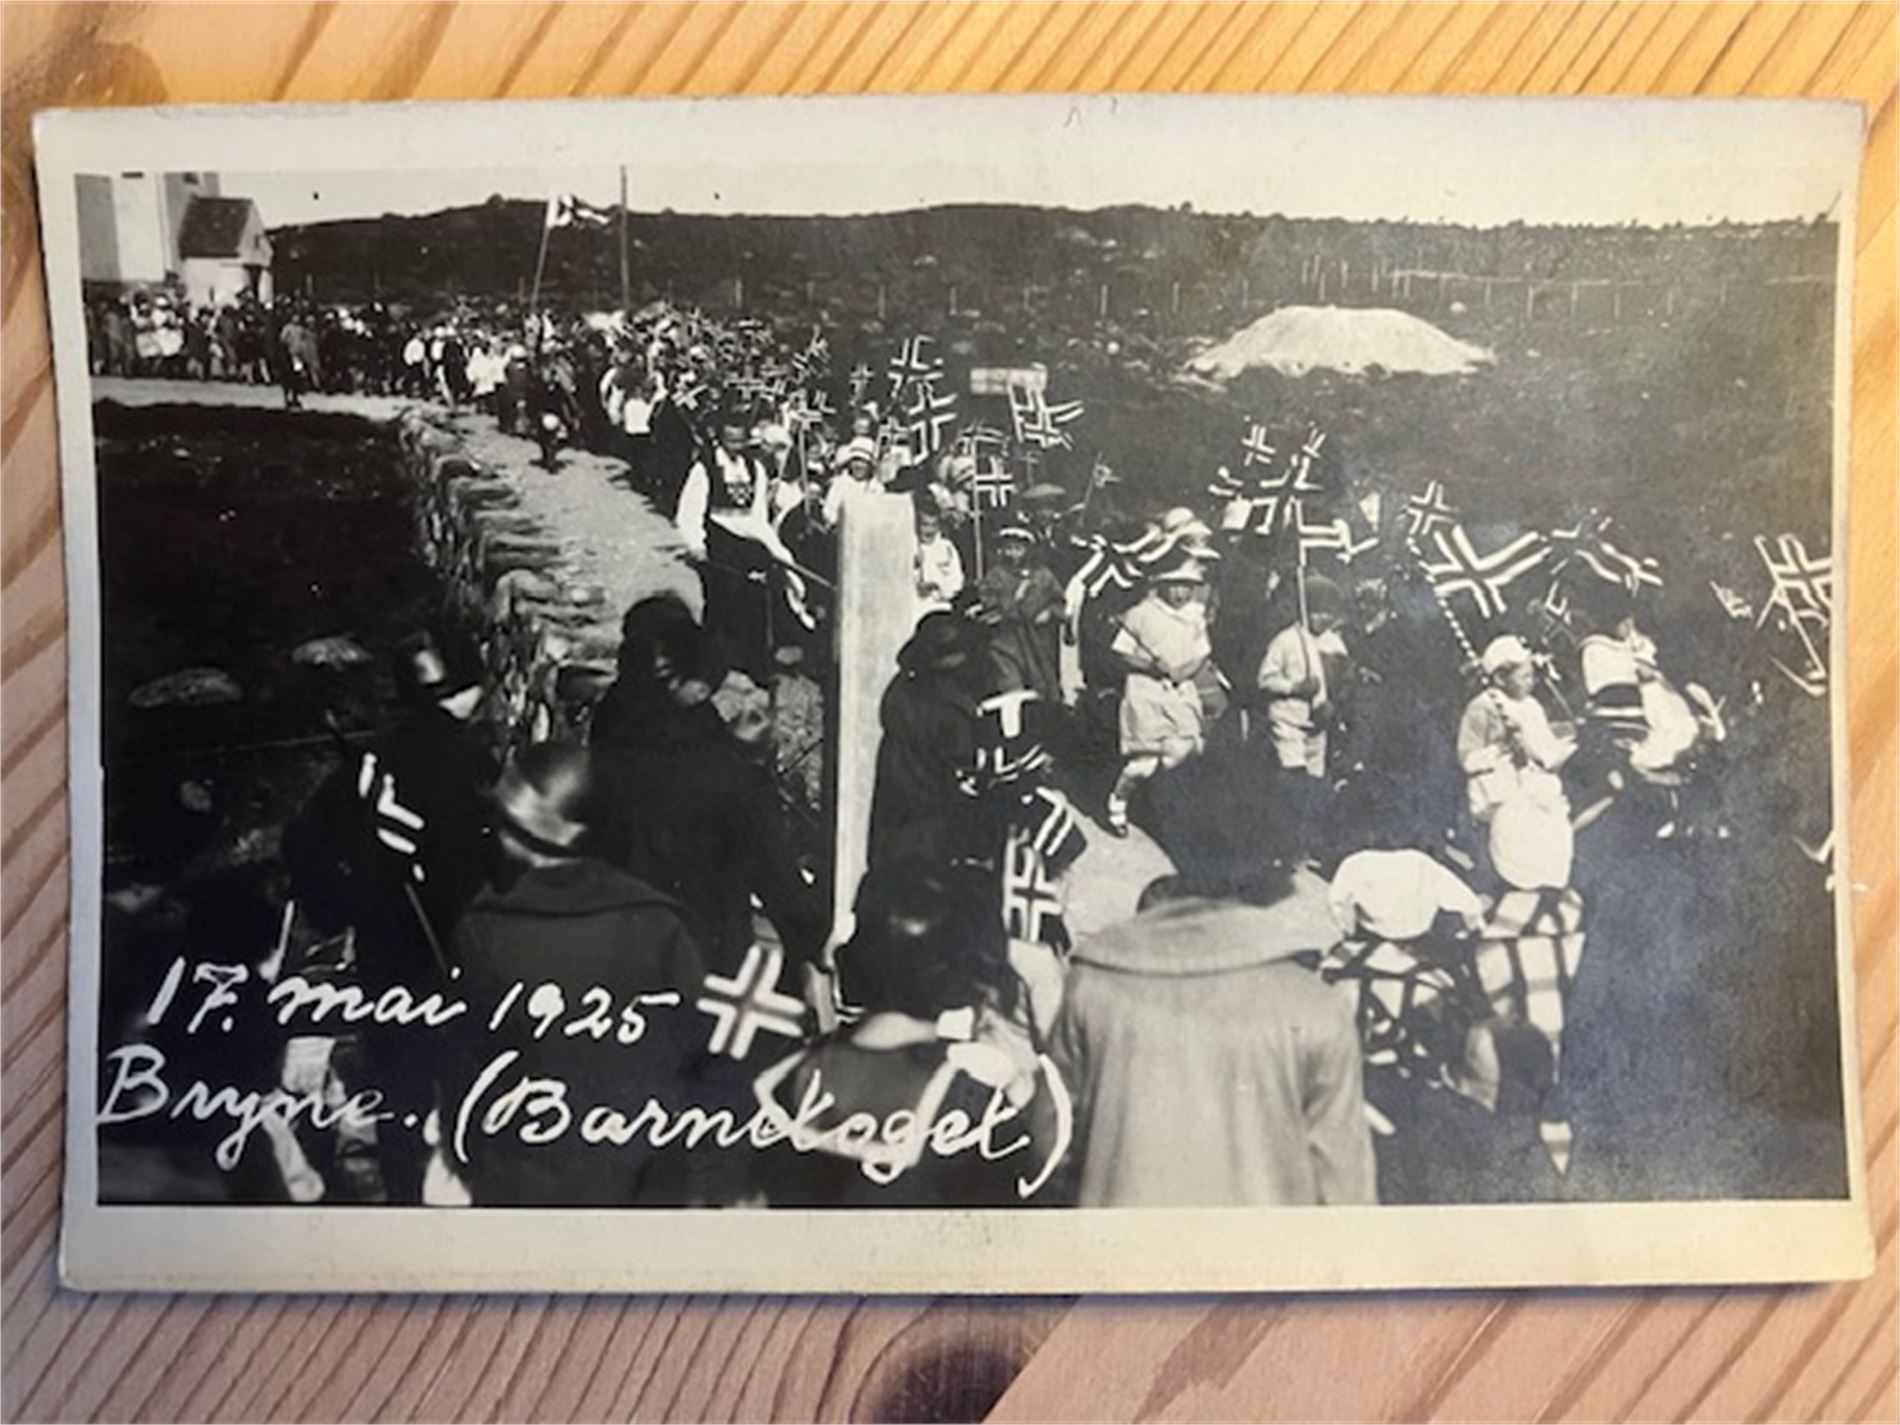 17. mai 1925
Bryne. (Barnetoget)